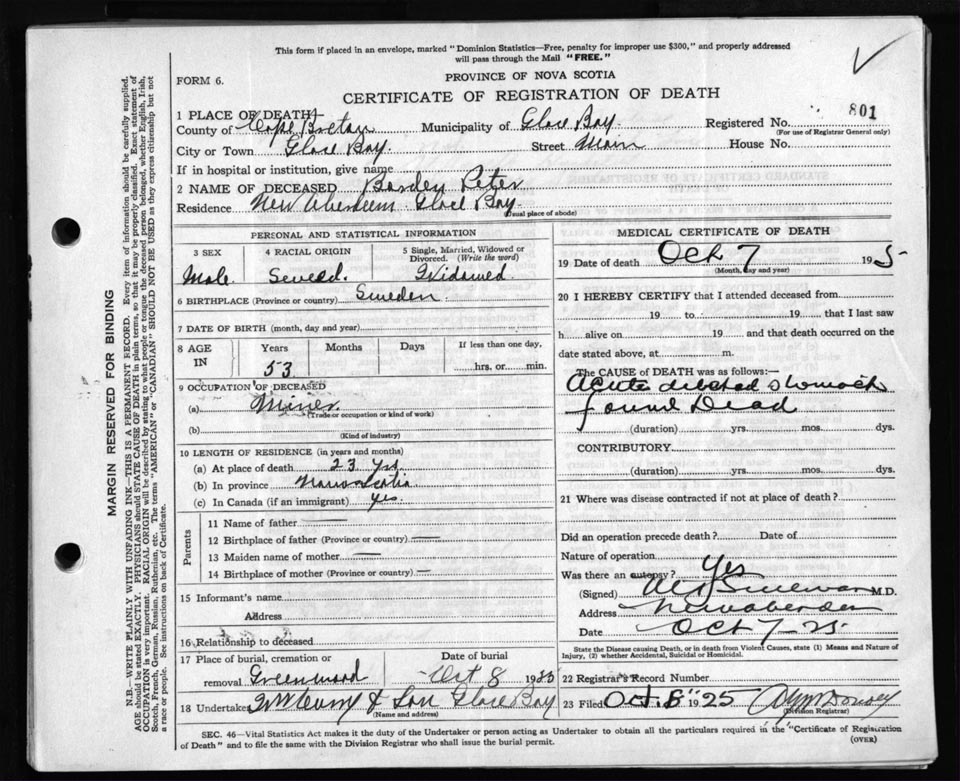 This form if placed in an envelope, marked "Dominion Statistics—Free, penalty for improper use $300," and properly addressed
will pass through the Mail "FREE."
FORM 6.
PROVINCE OF NOVA SCOTIA
CERTIFICATE OF REGISTRATION OF DEATH
1 PLACE OF DEATH
County of Cape Breton Municipality of Glace Bay. Registered No. 801
(For use of Registrar General only)
City or Town Glace Bay. Street Main House No.
If in hospital or institution, give name
2 NAME OF DECEASED Peter
Residence New Aberdeen Glace Bay.
(Usual place of abode)
PERSONAL AND STATISTICAL INFORMATION
3 SEX
Male
4 RACIAL ORIGIN
5 Single, Married, Widowed or
Divorced. (Write the word)
Widowed
6 BIRTHPLACE (Province or country) Sweden
7 DATE OF BIRTH (month, day and year)
8 AGE IN
Years
53
Months
Days
If less than one day.
hrs. or min.
9 OCCUPATION OF DECEASED
(a) Miner
(Trade or occupation or kind of work)
(b)
(Kind of industry)
10 LENGTH OF RESIDENCE (in years and months)
(a) At place of death 23 yrs
(b) In province Nova Scotia
(c) In Canada (if an immigrant) yes.
Parents
11 Name of father —
12 Birthplace of father (Province or country) —
13 Maiden name of mother —
14 Birthplace of mother (Province or country) —
15 Informant's name
Address
16 Relationship to deceased
17 Place of burial, cremation or
removal Greenwood
Date of burial
Oct 8 19
18 Undertaker & Son Glace Bay
(Name and address)
MEDICAL CERTIFICATE OF DEATH
19 Date of death Oct 7 192 5
(Month, day and year)
20 I HEREBY CERTIFY that I attended deceased from
19 to 19 that I last saw
h alive on 19 and that death occurred on the
date stated above, at m.
The CAUSE OF DEATH was as follows:—
Acute stomach
found Dead
(duration) yrs. mos. dys.
CONTRIBUTORY
(duration) yrs. mos. dys.
21 Where was disease contracted if not at place of death?
Did an operation precede death? Date of
Nature of operation
Was there an autopsy? Yes
(Signed) M.D.
Address
Date Oct 7-25
State the Disease causing Death, or in death from Violent Causes, state (1) Means and Nature of
Injury, (2) whether Accidental, Suicidal or Homicidal.
22 Registrar's Record Number
23 Filed Oct. 8" 1925
(Division Registrar)
SEC. 46—Vital Statistics Act makes it the duty of the Undertaker or person acting as Undertaker to obtain all the particulars required in the "Certificate of Registration
of Death" and to file the same with the Division Registrar who shall issue the burial permit.
(OVER)
MARGIN RESERVED FOR BINDING
N.B.—WRITE PLAINLY WITH UNFADING INK—THIS IS A PERMANENT RECORD. Every item of information should be carefully supplied.
AGE should be stated EXACTLY. PHYSICIANS should STATE CAUSE OF DEATH in plain terms, so that it may be properly classified. Exact statement of
OCCUPATION is very important. RACIAL ORIGIN will be described by stating to what people or tongue the deceased person belonged, whether English, Irish,
Scotch, French, German, Russian, Ruthenian, etc. The terms "AMERICAN" or "CANADIAN" SHOULD NOT BE USED as they express citizenship but not
a race or people. See instructions on back of Certificate.